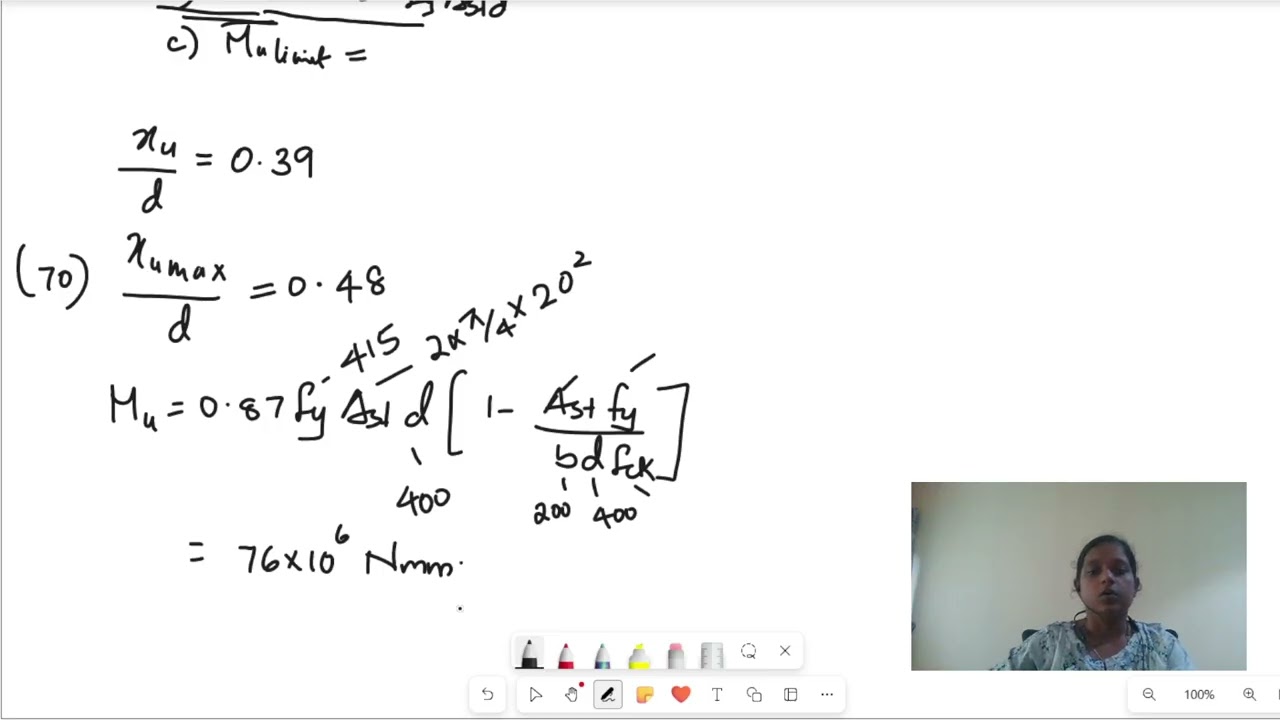 c) Mu limit =
xu/d = 0.39
(70) xu max/d = 0.48
415 2×π/4×20²
Mu = 0.87 fy Ast d [1 - Ast fy / bd fck]
400 200 400
= 76×10⁶ Nmm.
T
100%